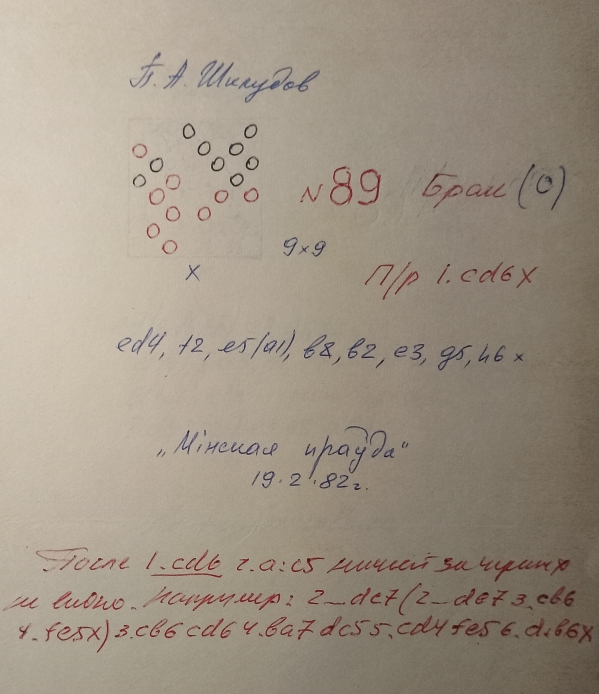 П. А. Шклудов
№89 Брак (0)
9×9
X
П/р 1. cd6X
ed4, f2, e5(a1), b8, b2, e3, g5, h6 x
„Мінская праўда“
19.2.82г.
После 1. cd6 г. a:c5 ничьей за черных
не видно. Например: 2_dc7(2_de7 3. cb6
4. fe5x) 3. cb6 cd6 4. ba7 dc5 5. cd4 fe5 6. d:b6X